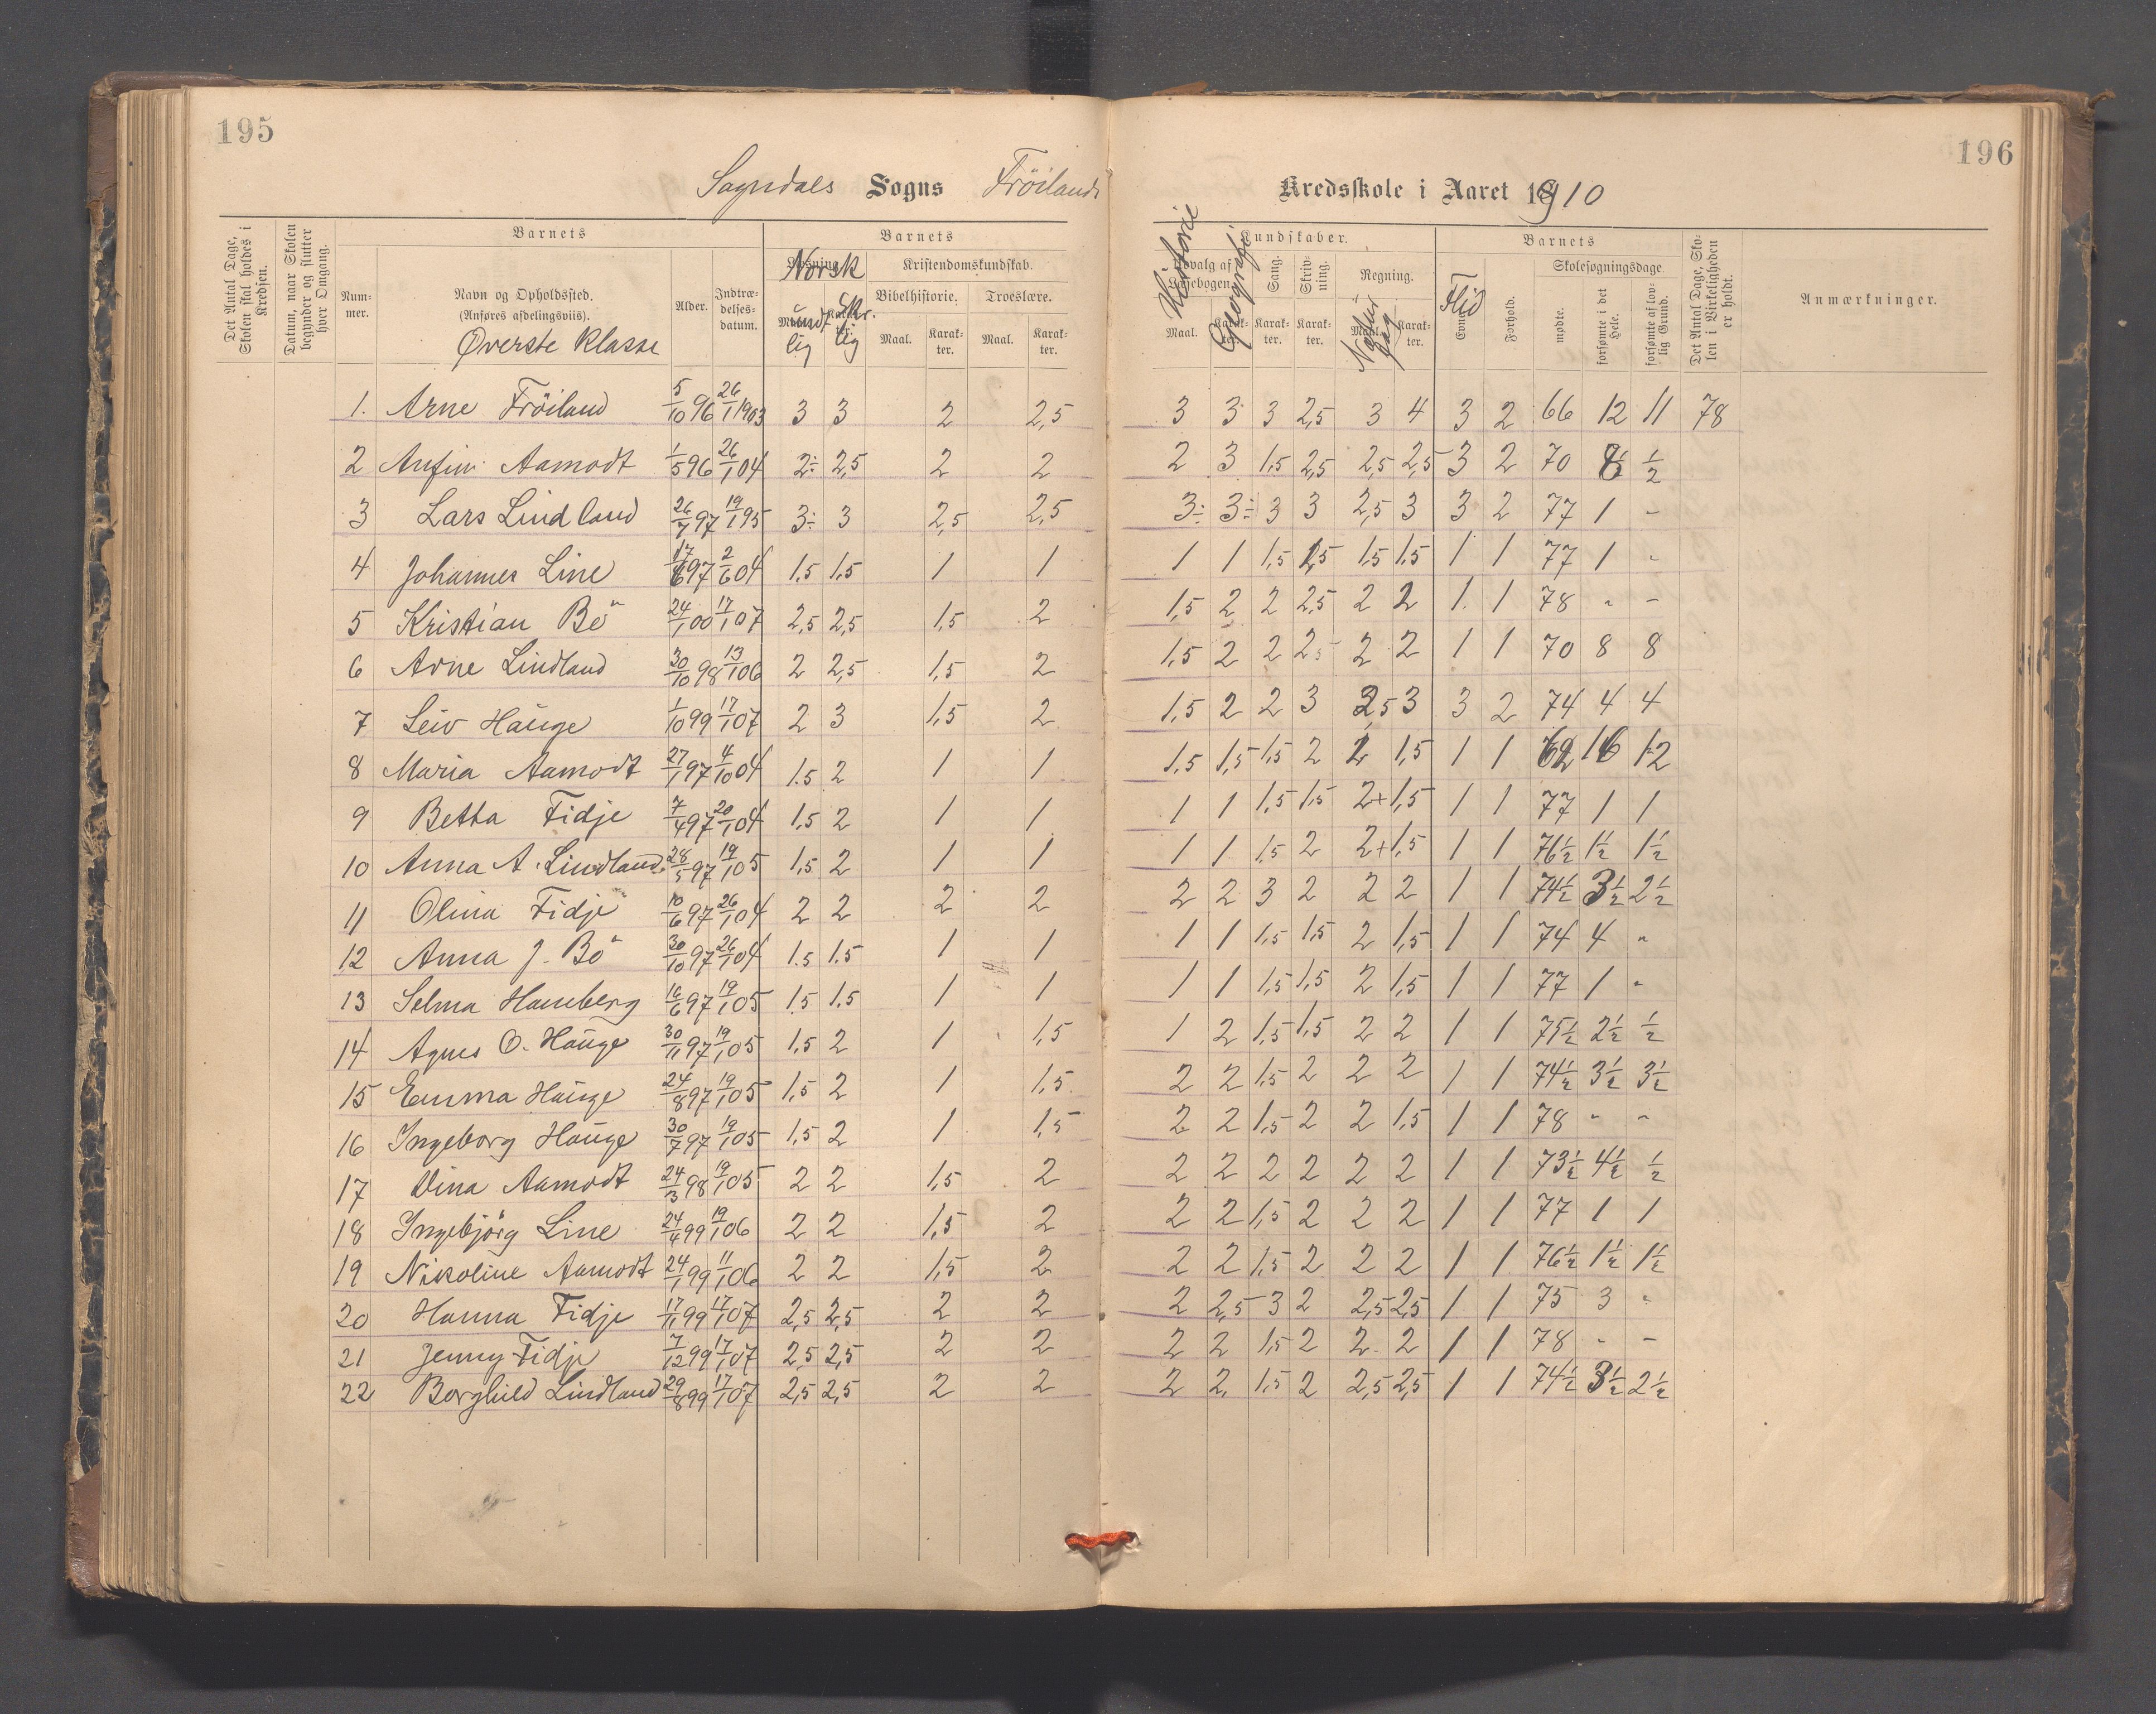 195
196
Sogndals Sogns Fröilands Kredsskole i Aaret 1910
Det Antal Dage, Skolen skal holdes i Kredsen.
Datum, naar Skolen begynder og slutter hver Omgang.
Barnets
Num-mer.
Navn og Opholdssted.
(Anføres afdelingsviis).
Øverste klasse
Alder.
Indtræ-delses-datum.
Barnets
Norsk
mundtlig
skr.lig
Kristendomskundskab.
Bibelhistorie.
Troeslære.
Maal.
Karak-ter.
Maal.
Karak-ter.
Kundskaber.
Historie
Udvalg af Læsebogen.
Geografi
Maal.
Sang.
Karak-ter.
Skriv-ning.
Karak-ter.
Regning.
Naturfag
Karak-ter.
Barnets
Flid
Evner
Forhold.
Skolesøgningsdage.
mødte.
forsømte i det Hele.
forsømte af lov-lig Grund.
Det Antal Dage, Sko-len i Virkeligheden er holdt.
Anmærkninger.
1. Arne Fröiland 5/10 96 26/1 1903 3 3 2 2,5 3 3 3 2,5 3 4 3 2 66 12 11 78
2 Anfin Aamodt 1/5 96 26/1 04 2÷ 2,5 2 2 2 3 1,5 2,5 2,5 2,5 3 2 70 8 1/2
3 Lars Lindland 26/7 97 19/1 95 3÷ 3 2,5 2,5 3÷ 3÷ 3 3 2,5 3 3 2 77 1 -
4 Johannes Line 17/6 97 2/6 04 1,5 1,5 1 1 1 1 1,5 2,5 1,5 1,5 1 1 77 1 -
5 Kristian Bö 24/1 00 17/1 07 2,5 2,5 1,5 2 1,5 2 2 2,5 2 2 1 1 78 - -
6 Arne Lindland 30/10 98 13/1 06 2 2,5 1,5 2 1,5 2 2 2,5 2 2 1 1 70 8 8
7 Leiv Hauge 1/10 99 17/1 07 2 3 1,5 2 1,5 2 2 3 2,5 3 3 2 74 4 4
8 Maria Aamodt 27/1 97 4/10 04 1.5 2 1 1 1,5 1,5 1,5 2 2 1,5 1 1 62 16 12
9 Betha Fidje 7/4 97 20/1 04 1,5 2 1 1 1 1 1,5 1,5 2+ 1,5 1 1 77 1 1
10 Anna A. Lindland 28/5 97 19/1 05 1,5 2 1 1 1 1 1,5 2 2+ 1,5 1 1 76 1/2 1 1/2 1 1/2
11 Olina Fidje 10/6 97 26/1 04 2 2 2 2 2 2 3 2 2 2 1 1 74 1/2 3 1/2 2 1/2
12 Anna J. Bö 30/10 97 26/1 04 1.5 1.5 1 1 1 1 1,5 1,5 2 1,5 1 1 74 4 -
13 Selma Hamberg 16/6 97 19/1 05 1.5 1.5 1 1 1 1 1,5 1,5 2 1,5 1 1 77 1 -
14 Agnes O. Hauge 30/11 97 19/1 05 1,5 2 1 1,5 1 2 1,5 1,5 2 2 1 1 75 1/2 2 1/2 1/2
15 Emma Hauge 24/8 97 19/1 05 1,5 2 1 1,5 2 2 1,5 2 2 2 1 1 74 1/2 3 1/2 3 1/2
16 Ingeborg Hauge 30/7 97 19/1 05 1,5 2 1 1,5 2 2 1,5 2 2 1,5 1 1 78 - -
17 Dina Aamodt 24/3 98 19/1 05 2 2 1,5 2 2 2 2 2 2 2 1 1 73 1/2 4 1/2 1/2
18 Ingebjörg Line 24/4 99 19/1 06 2 2 1,5 2 2 2 1,5 2 2 2 1 1 77 1 1
19 Nikoline Aamodt 24/1 99 11/1 06 2 2 1,5 2 2 2 1,5 2 2 2 1 1 76 1/2 1 1/2 1 1/2
20 Hanna Fidje 17/11 99 17/1 07 2,5 2,5 2 2 2 2,5 3 2 2,5 2,5 1 1 75 3 -
21 Jenny Fidje 7/12 99 17/1 07 2,5 2,5 2 2 2 2 1,5 2 2 2 1 1 78 - -
22 Borghild Lindland 29/8 99 17/1 07 2,5 2,5 2 2 2 2 1,5 2 2,5 2,5 1 1 74 1/2 3 1/2 2 1/2